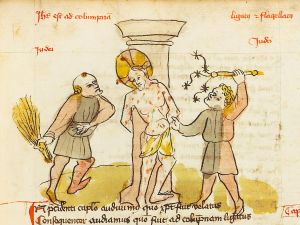 Jhc est ad columpnā ligatus et flagellatus
Judei
Judei
Precedenti caplo audiuimꝰ quo xpc fuit velatus
Consequenter audiamus quo fuit ad colūpnam ligatus
Cap